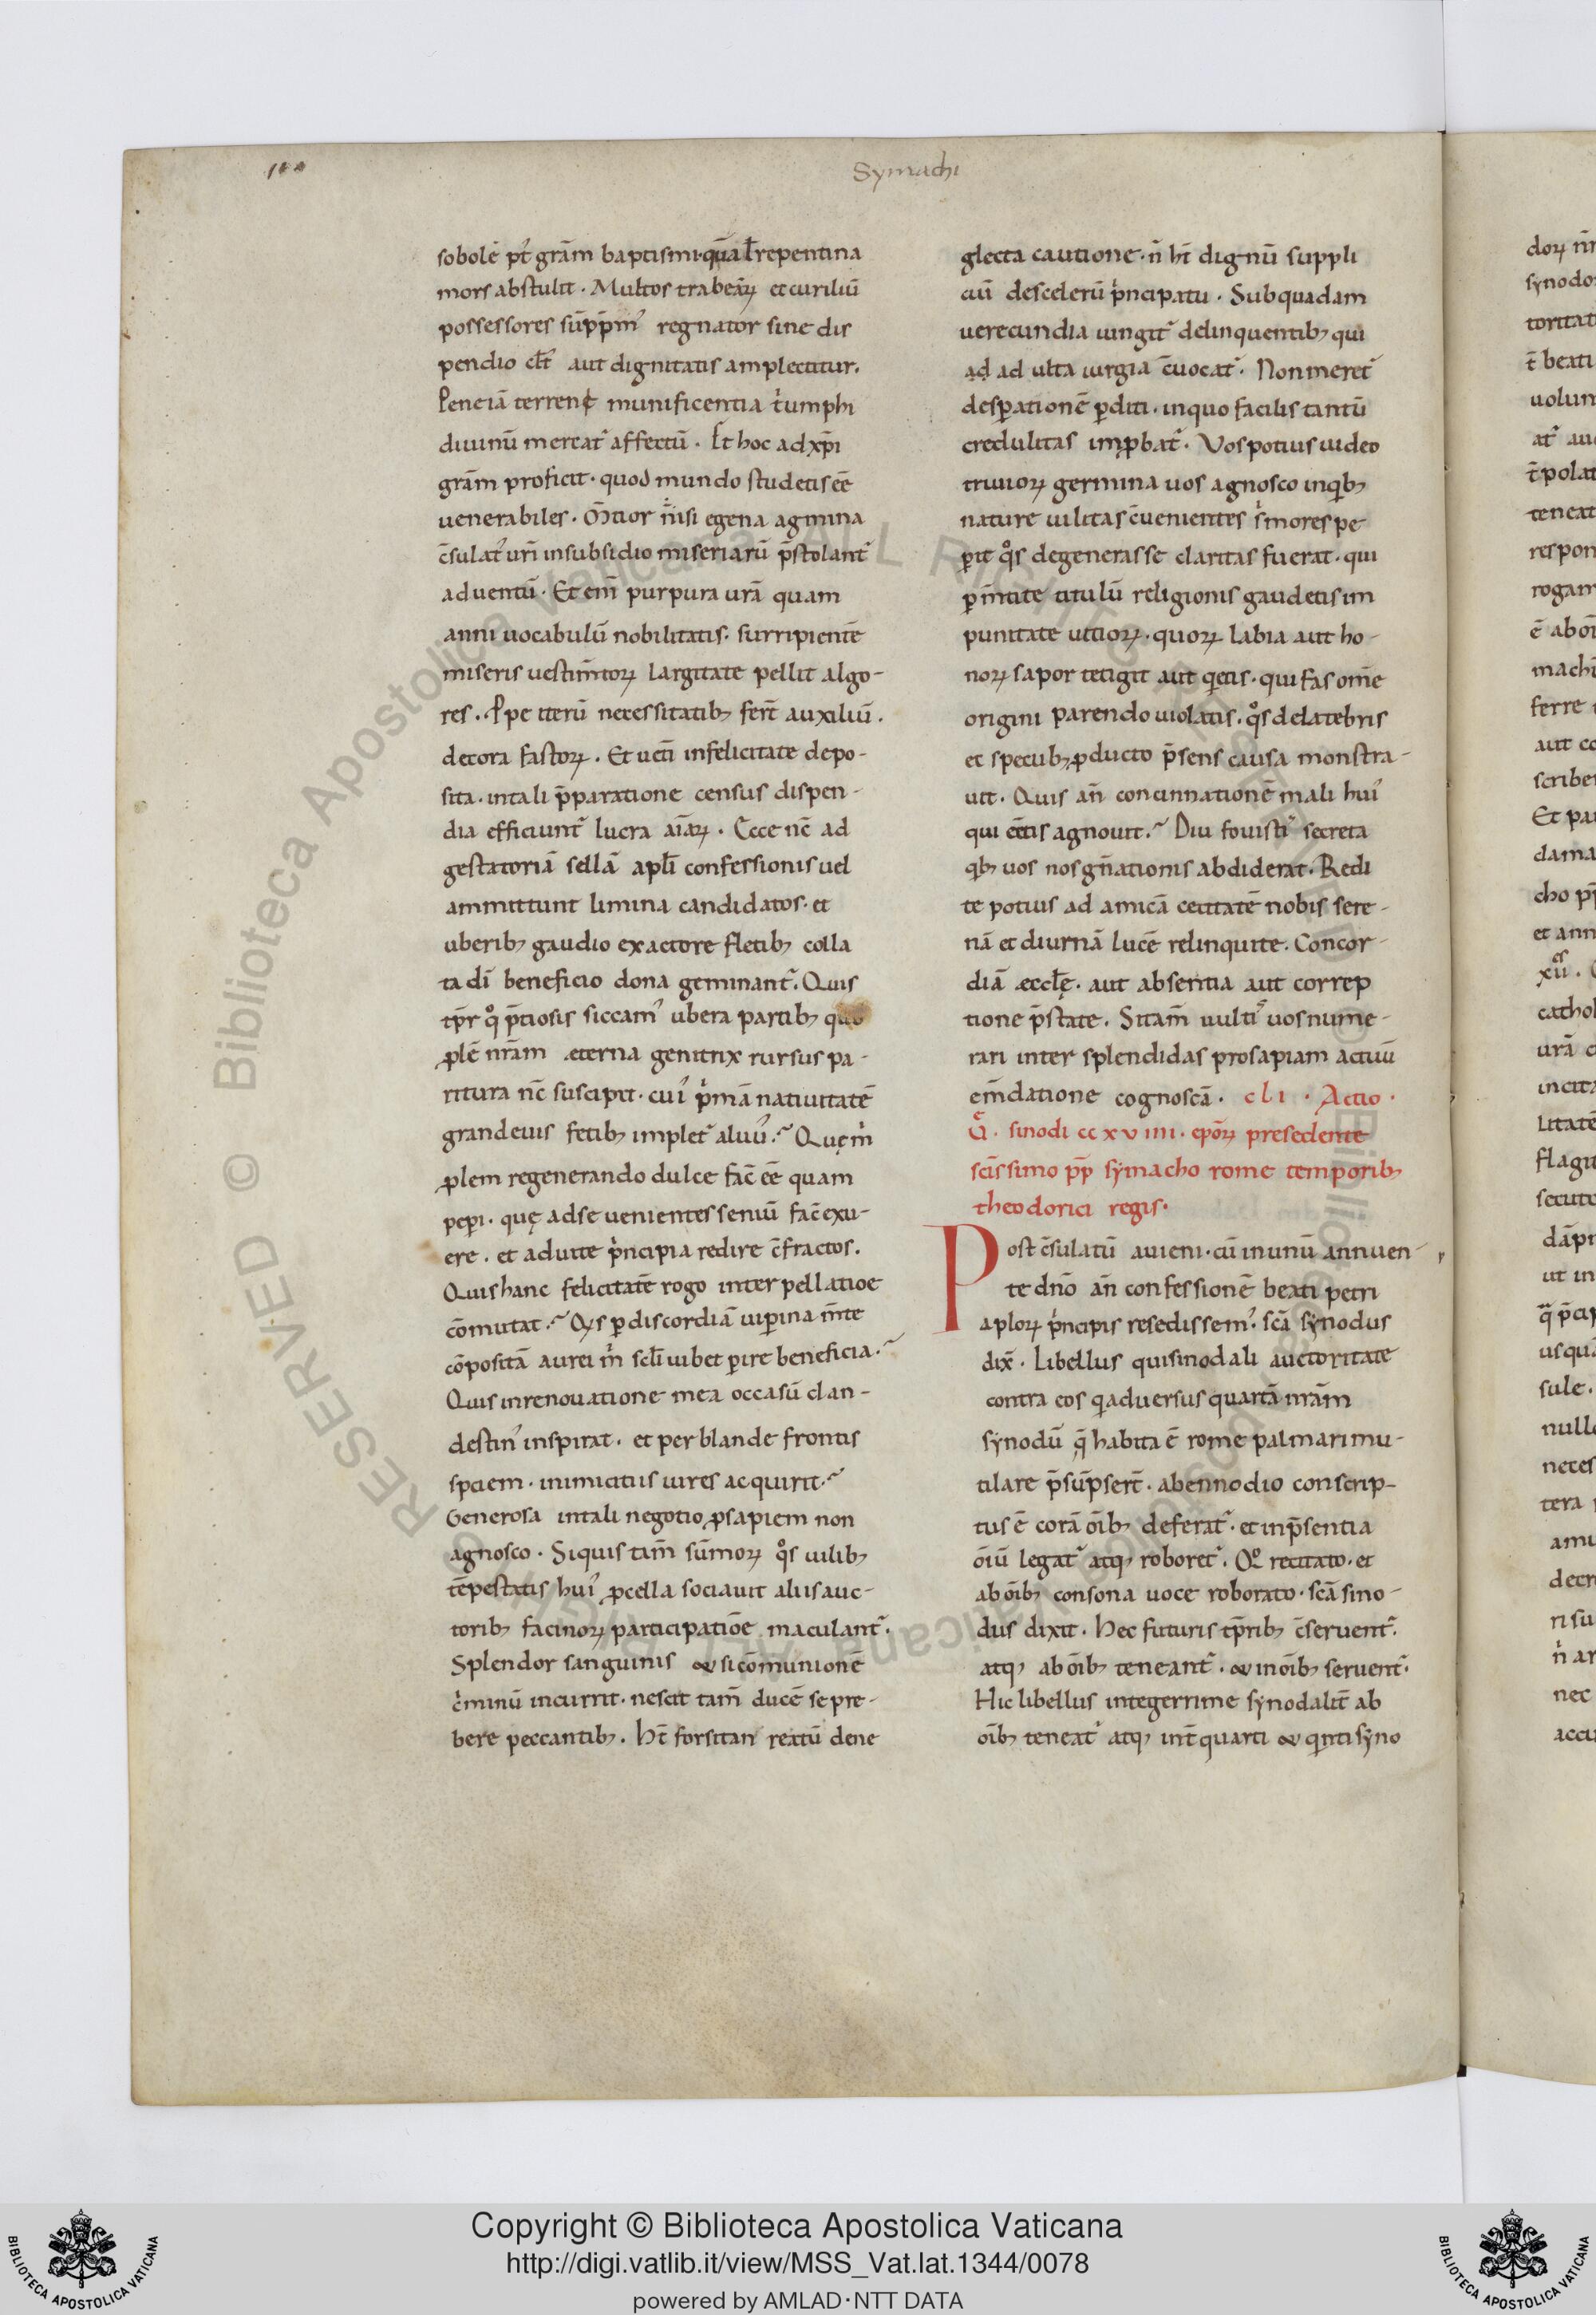 Symachi
sobolē pt᷒ grām baptismi. quā ł repentina
mors abstulit. Multos trabearꝝ et curiliū
possessores regnator sine dis
pendio aut dignitatis amplectitur.
terrenę munificentia
diuinū mereat᷒ affectū. Et hoc ad xp̄i
grām proficit. quod mundo studetis eē
uenerabiles. egena agmina
in subsidio miseriarū p̄stolant᷒
aduentū. Et em̄ purpura urā quam
anni uocabulū nobilitatis. surripientē
miseris uestim̄torꝝ largitate pellit algo-
res. iterū necessitatibꝫ fert̄ auxiliū.
decora fastorꝝ. Et infelicitate depo-
sita. in tali p̄paratione census dispen-
dia efficiunt᷒ lucra aīarꝝ. Ecce nc̄ ad
gestatoriā sellā apłi confessionis uel
ammittunt limina candidatos. et
uberibꝫ gaudio exactore fletibꝫ colla
ta dī beneficio dona geminant᷒. Quis
siccam᷒ ubera partibꝫ quo
ꝓlē nrām æterna genitrix rursus pa-
ritura nc̄ suscipit. cui᷒ natiuitatē
grandeuis fetibꝫ implet᷒ aluū.
ꝓlem regenerando dulce fac̄ eē quam
peꝑi. quę ad se uenientes seniū fac̄ exu-
ere. et aduite principia redire c̄fractos.
Quis hanc felicitatē rogo inter pellatioe
cōmutat. ꝑ discordiā uiꝑina m̄te
cōpositā aurei beneficia.
Quis in renouatione mea occasū clan-
destin᷒ inspirat. et per blande frontis
spciem. inimicitiis uires acquirit.
Generosa in tali negotio ꝓsapiem non
agnosco. Siquis tam̄ sūmorꝝ uilibꝫ
tēpestatis hui᷒ ꝓcella sociauit aliis auc-
toribꝫ facinorꝝ participatiōe maculant᷒.
Splendor sanguinis & si cōmunionē
criminū incurrit. nescit tam̄ ducē se pre-
bere peccantibꝫ. Ht̄ forsitan reatū dene
glecta cautione. n̄ ht̄ dignū suppli
ciū de scelerū principatu. Sub quadam
uerecundia uingit᷒ delinquentibꝫ qui
ad ad ulta iurgia c̄uocat᷒. Non meret᷒
desꝑationē ꝑditi. in quo facilis tantū
credulitas imꝓbat᷒. Vos potius uideo
triuiorꝝ germina uos agnosco in qibꝫ
nature uilitas c̄uenientes mores pe
ꝑit degenerasse claritas fuerat. qui
ꝑ m̄tite titulū religionis gaudetis im
punitate uitiorꝝ. quorꝝ labia aut ho-
norꝝ sapor tetigit aut qetis. qui fas omē
origini parendo uiolatis. de latebris
et specubꝫ ꝓducto p̄sens causa monstra-
uit. Quis an̄ concinnationē mali hui᷒
qui eētis agnouit. Diu fouisti᷒ secreta
qibꝫ uos nos gn̄ationis abdiderat. Redi
te potius ad amicā cecitatē nobis sere-
nā et diurnā lucē relinquite. Concor-
diā æccłę. aut absentia aut correp
tione p̄state. Si tam̄ uulti᷒ uos nume-
rari inter splendidas prosapiam actuū
em̄datione cognoscā. cli. Actio.
sinodi ccxviiii. epōrꝝ presedente
scīssimo pp̄ symacho rome temporibꝫ
theodorici regis.
Post c̄sulatū auieni. cū in unū annuen-
te dnō an̄ confessionē beati petri
aplorꝝ principis resedissem᷒. scā synodus
dix̄. Libellus qui sinodali auctoritate
contra eos qi aduersus quartā nrām
synodū q̄ habita ē rome palmari mu-
tilare p̄sūpsert̄. ab ennodio conscrip-
tus ē corā oīb; deferat᷒. et in p̄sentia
oīū legat᷒ atqꝫ roboret᷒. Qo recitato. et
ab oīb; consona uoce roborato. scā sino-
dus dixit. Hec futuris tp̄ribꝫ c̄seruent᷒.
atqꝫ ab oīb; teneant᷒. & in oīb; seruent᷒.
Hic libellus integerrime synodalit̄ ab
oīb; teneat᷒ atqꝫ int̄ quarti & qinti syno
Copyright © Biblioteca Apostolica Vaticana
http://digi.vatlib.it/view/MSS_Vat.lat.1344/0078
powered by AMLAD·NTT DATA
BIBLIOTECA APOSTOLICA VATICANA
BIBLIOTECA APOSTOLICA VATICANA